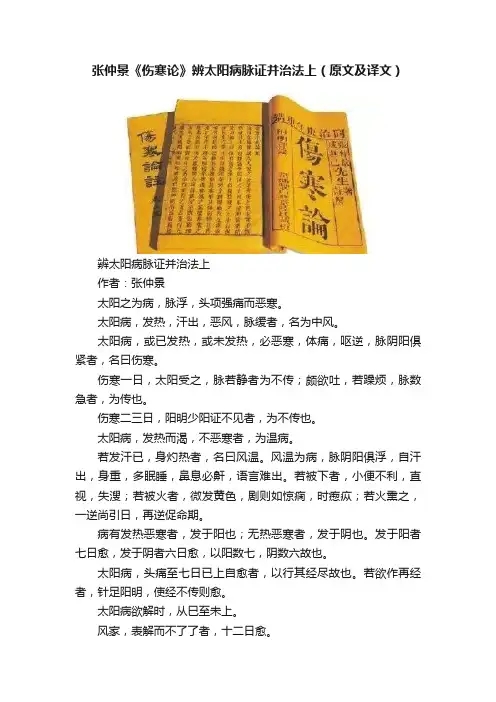 张仲景《伤寒论》辨太阳病脉证并治法上（原文及译文）
傷寒論
傷寒論
先生著
辨太阳病脉证并治法上
作者：张仲景
太阳之为病，脉浮，头项强痛而恶寒。
太阳病，发热，汗出，恶风，脉缓者，名为中风。
太阳病，或已发热，或未发热，必恶寒，体痛，呕逆，脉阴阳俱
紧者，名曰伤寒。
伤寒一日，太阳受之，脉若静者为不传；颇欲吐，若躁烦，脉数
急者，为传也。
伤寒二三日，阳明少阳证不见者，为不传也。
太阳病，发热而渴，不恶寒者，为温病。
若发汗已，身灼热者，名曰风温。风温为病，脉阴阳俱浮，自汗
出，身重，多眠睡，鼻息必鼾，语言难出。若被下者，小便不利，直
视，失溲；若被火者，微发黄色，剧则如惊痫，时瘛疭；若火熏之，
一逆尚引日，再逆促命期。
病有发热恶寒者，发于阳也；无热恶寒者，发于阴也。发于阳者
七日愈，发于阴者六日愈，以阳数七，阴数六故也。
太阳病，头痛至七日已上自愈者，以行其经尽故也。若欲作再经
者，针足阳明，使经不传则愈。
太阳病欲解时，从巳至未上。
风家，表解而不了了者，十二日愈。